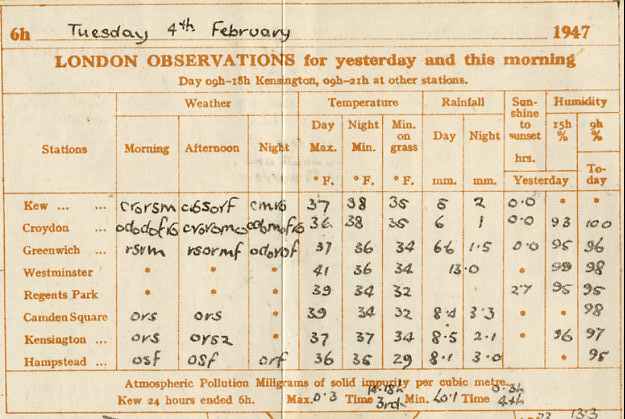 6h Tuesday 4th February 1947
LONDON OBSERVATIONS for yesterday and this morning
Day 09h-18h Kensington, 09h-21h at other stations.
Weather Temperature Rainfall Sun-shine to sunset Humidity
Stations Morning Afternoon Night Day Max. Night Min. Min. on grass Day Night hrs. 15h % 9h %
° F. ° F. ° F. mm. mm. Yesterday To-day
Kew ... ... 37 38 35 5 2 0·0 * *
Croydon ... 36 38 35 6 1 0·0 93 100
Greenwich ... rsrm rsormf 37 36 34 6·6 1·5 0·0 95 96
Westminster * * 41 36 34 13·0 * 99 98
Regents Park * * 39 34 32 2·7 95 95
Camden Square ors ors 39 34 32 8·4 3·3 * * 98
Kensington ... ors orsz 37 37 34 8·5 2·1 * 96 97
Hampstead ... osf osf orf 36 35 29 8·1 3·0 * * 95
Atmospheric Pollution Milligrams of solid impurity per cubic metre.
Kew 24 hours ended 6h. Max. 0·3 Time 3rd Min. Time 4th
13·3